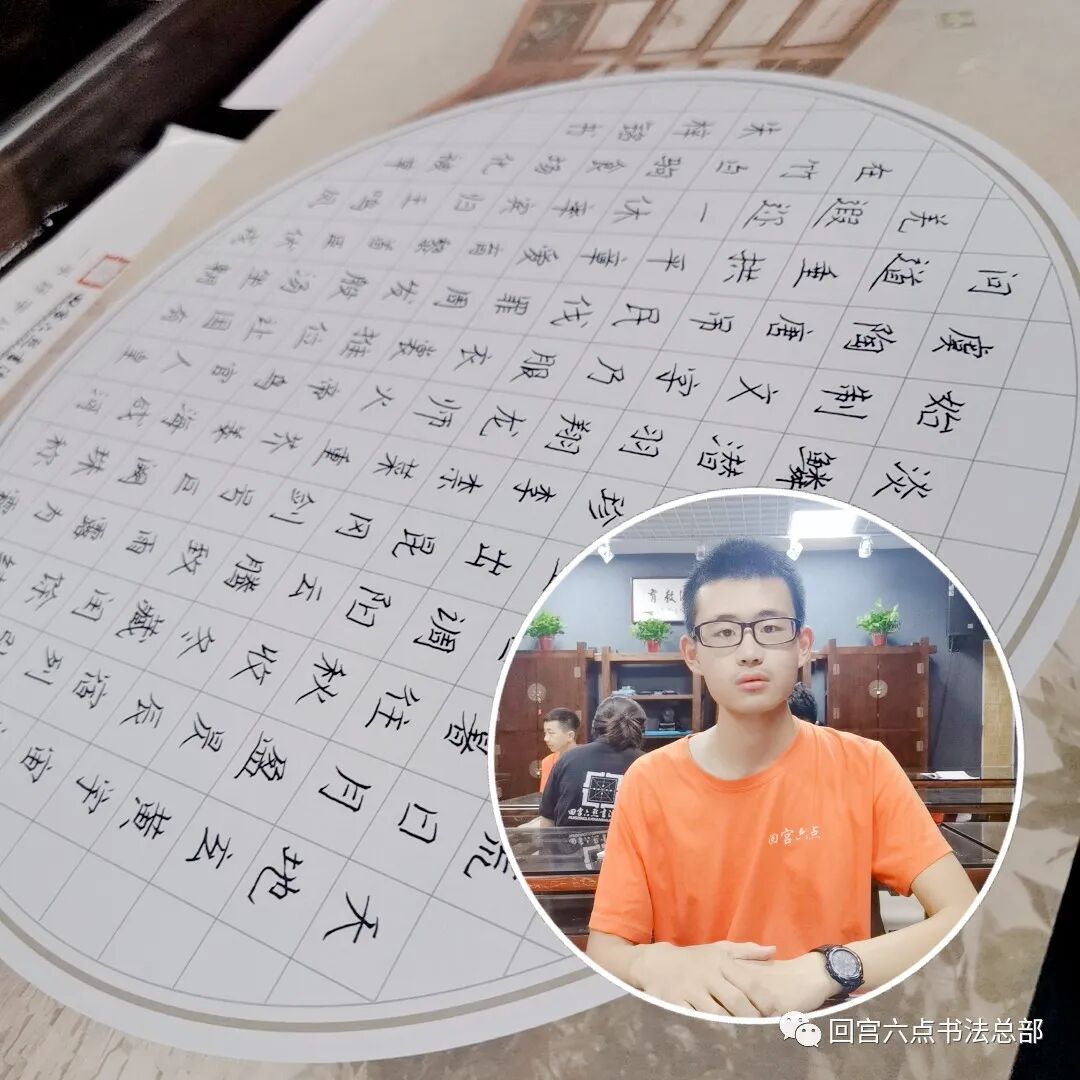 天地玄黄宇宙
荒日月盈昃辰宿列
暑往秋收冬藏闰馀
调阳云腾致雨露为霜
出昆冈剑号巨阙珠称
珍李柰菜重芥姜海咸河
淡鳞潜羽翔龙师火帝鸟官人皇
始制文字乃服衣裳推位让国有
虞陶唐吊民伐罪周发殷汤坐朝
问道垂拱平章爱育黎首臣伏戎
羌遐迩一体率宾归王鸣凤
在竹白驹食场化被草
朱梓铭书
回宫六点
回宫六点书法总部